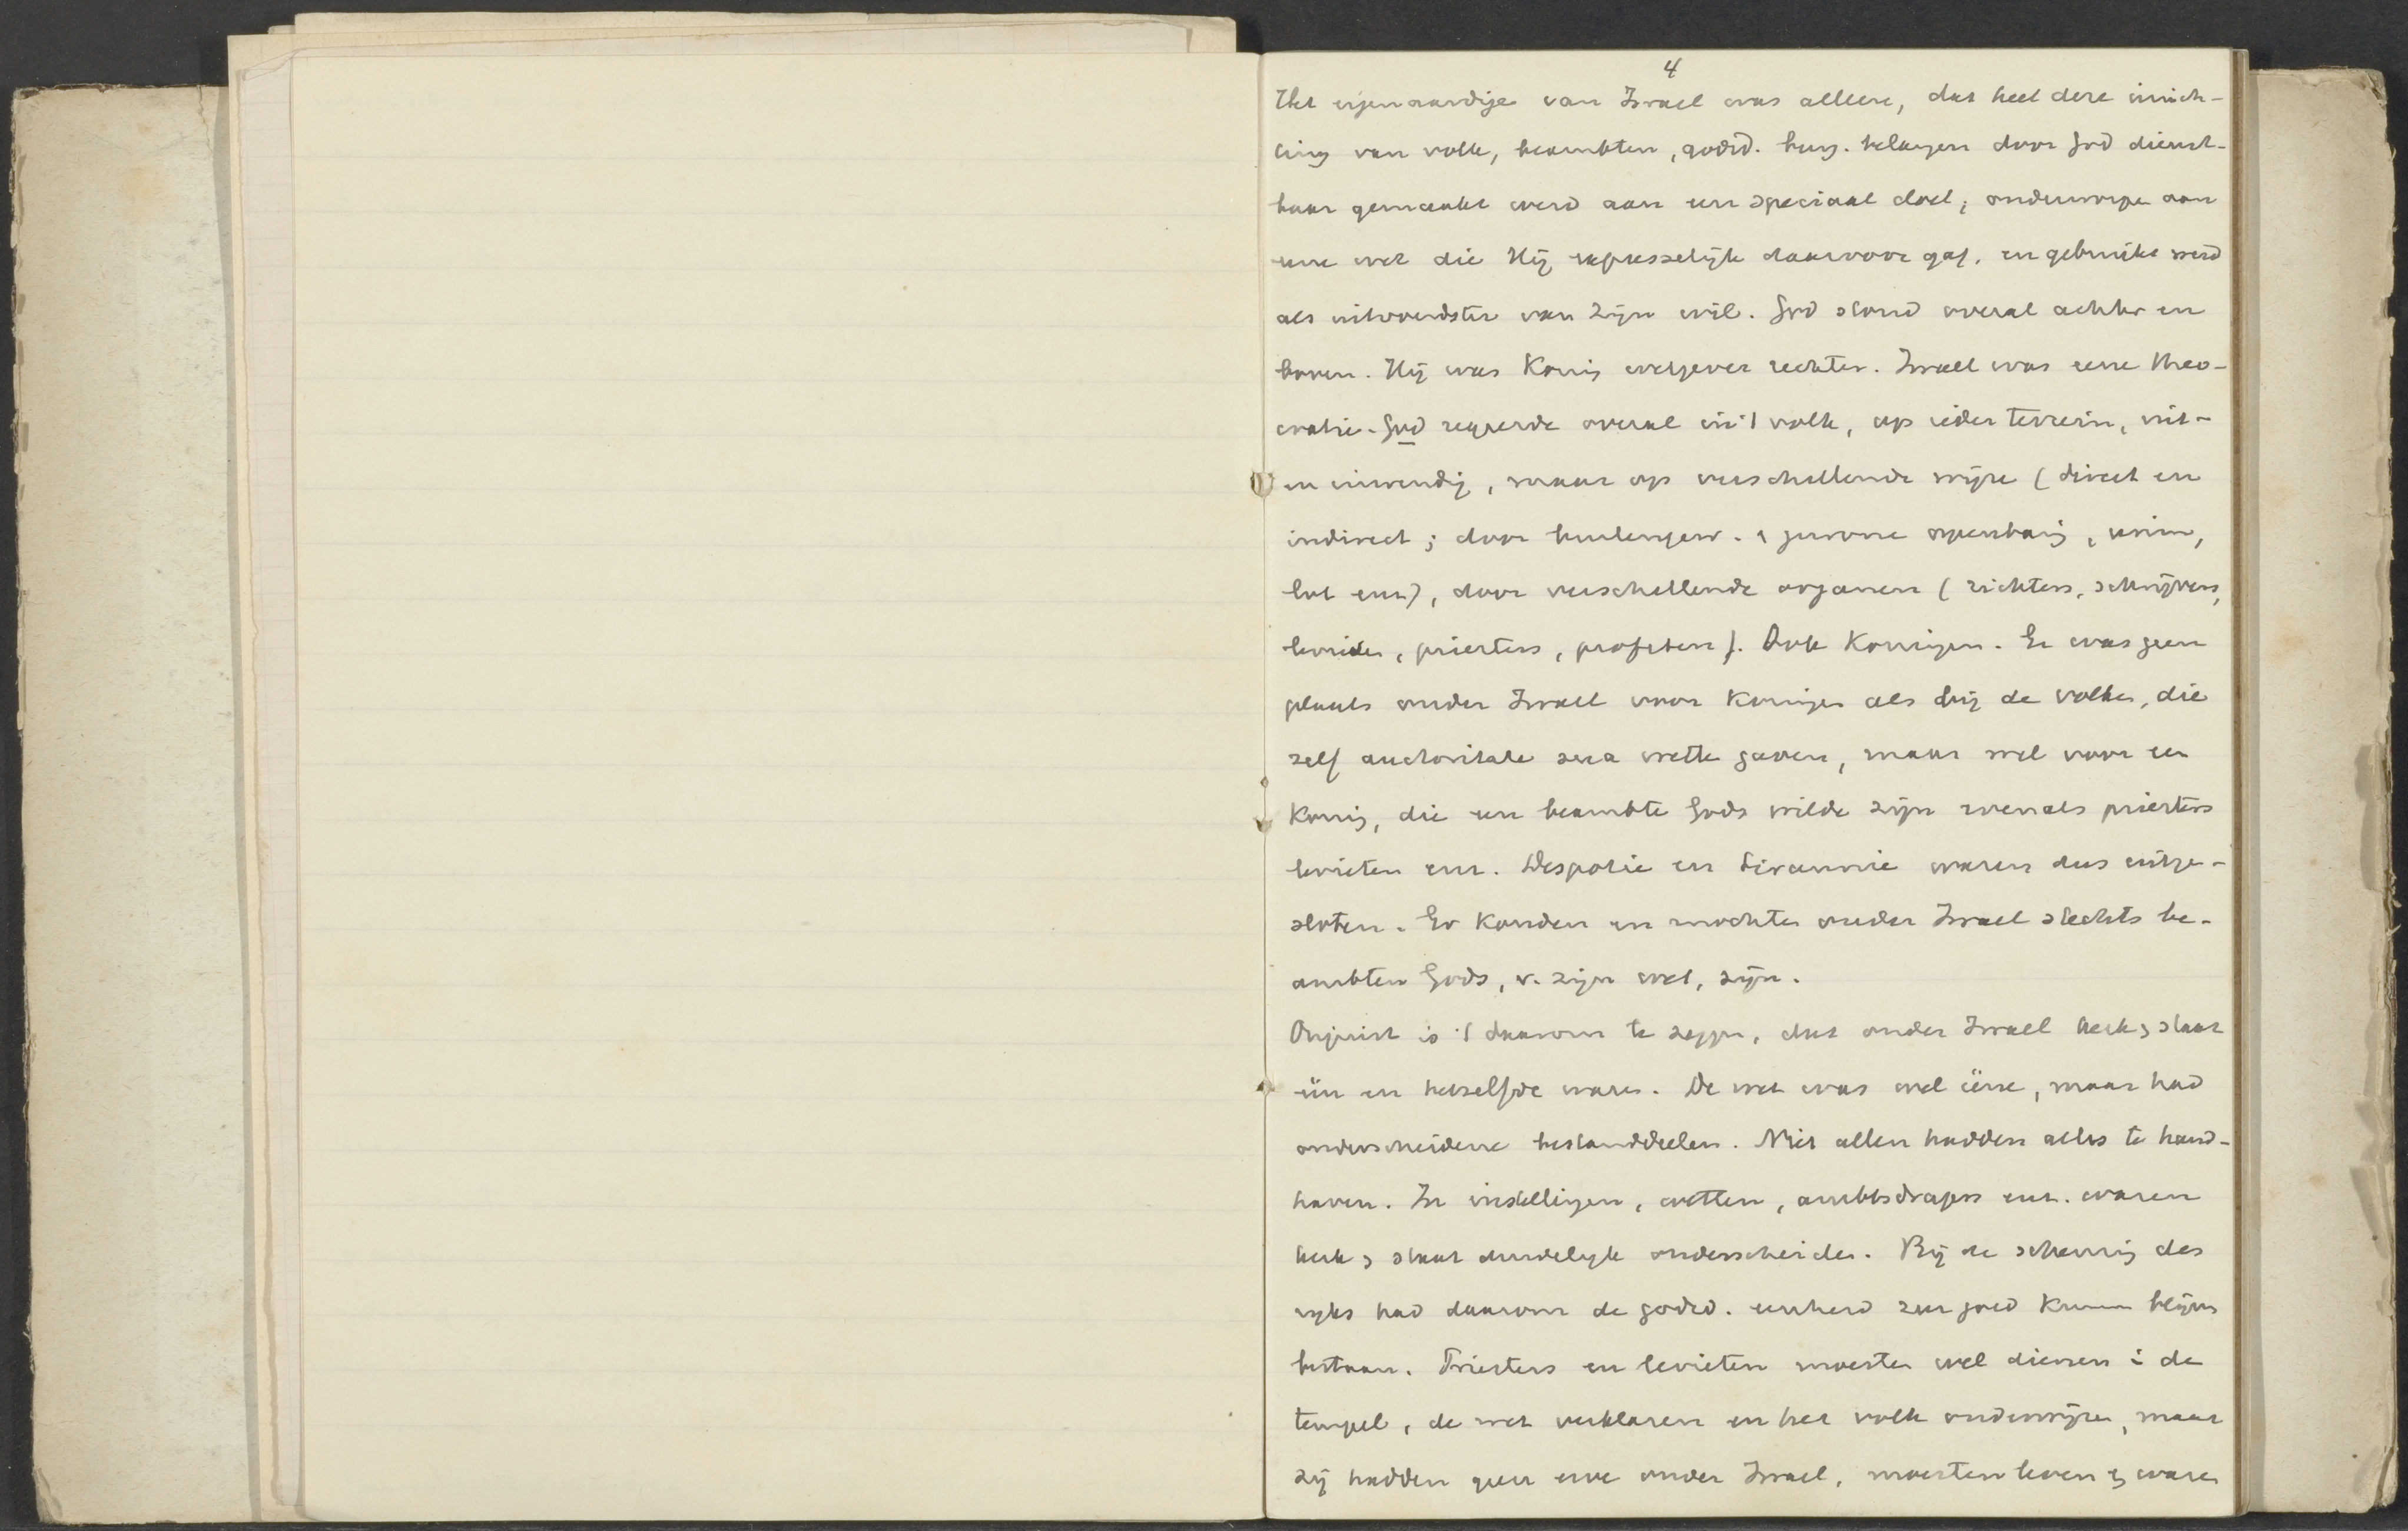 4
Het eigenaardige van Israel was alleen, dat heel deze inrich-
ting van volk, beambten, godsd. burg. belangen door God dienst-
baar gemaakt werd aan een speciaal doel, onderworpen aan
eene wet die Hij expresselijk daarvoor gaf, en gebruikt werd
als uitvoerdster van Zijn wil. God stond overal achter en
boven. Hij was Koning wetgever rechter. Israel was eene theo-
cratie. God regeerde overal in 't volk, op ieder terrein, uit-
en inwendig, maar op verschillende wijze (direct en
indirect; door buitengew. & gewone openbaring, urim,
lot enz), door verschillende organen (richters, schrijvers,
levieten, priesters, profeten). Ook Koningen. Er was geen
plaats onder Israel voor Koningen als bij de volken, die
zelf auctoritate sua wetten gaven, maar wel voor een
Koning, die een beambte Gods wilde zijn evenals priesters
levieten enz. Despotie en tirannie waren dus uitge-
sloten. Er konden en mochten onder Israel slechts be-
ambten Gods, v. zijn wet, zijn.
Onjuist is 't daarom te zeggen, dat onder Israel kerk & staat
één en hetzelfde waren. De wet was wel ééne, maar had
onderscheidene bestanddeelen. Niet allen hadden alles te hand-
haven. In instellingen, wetten, ambtsdragers enz. waren
kerk & staat duidelijk onderscheiden. Bij de scheuring des
rijks had daarom de godsd. eenheid zeer goed kunnen blijven
bestaan. Priesters en levieten moesten wel dienen i de
tempel, de wet verklaren en het volk onderwijzen, maar
zij hadden geen erve onder Israel, moesten leven & waren